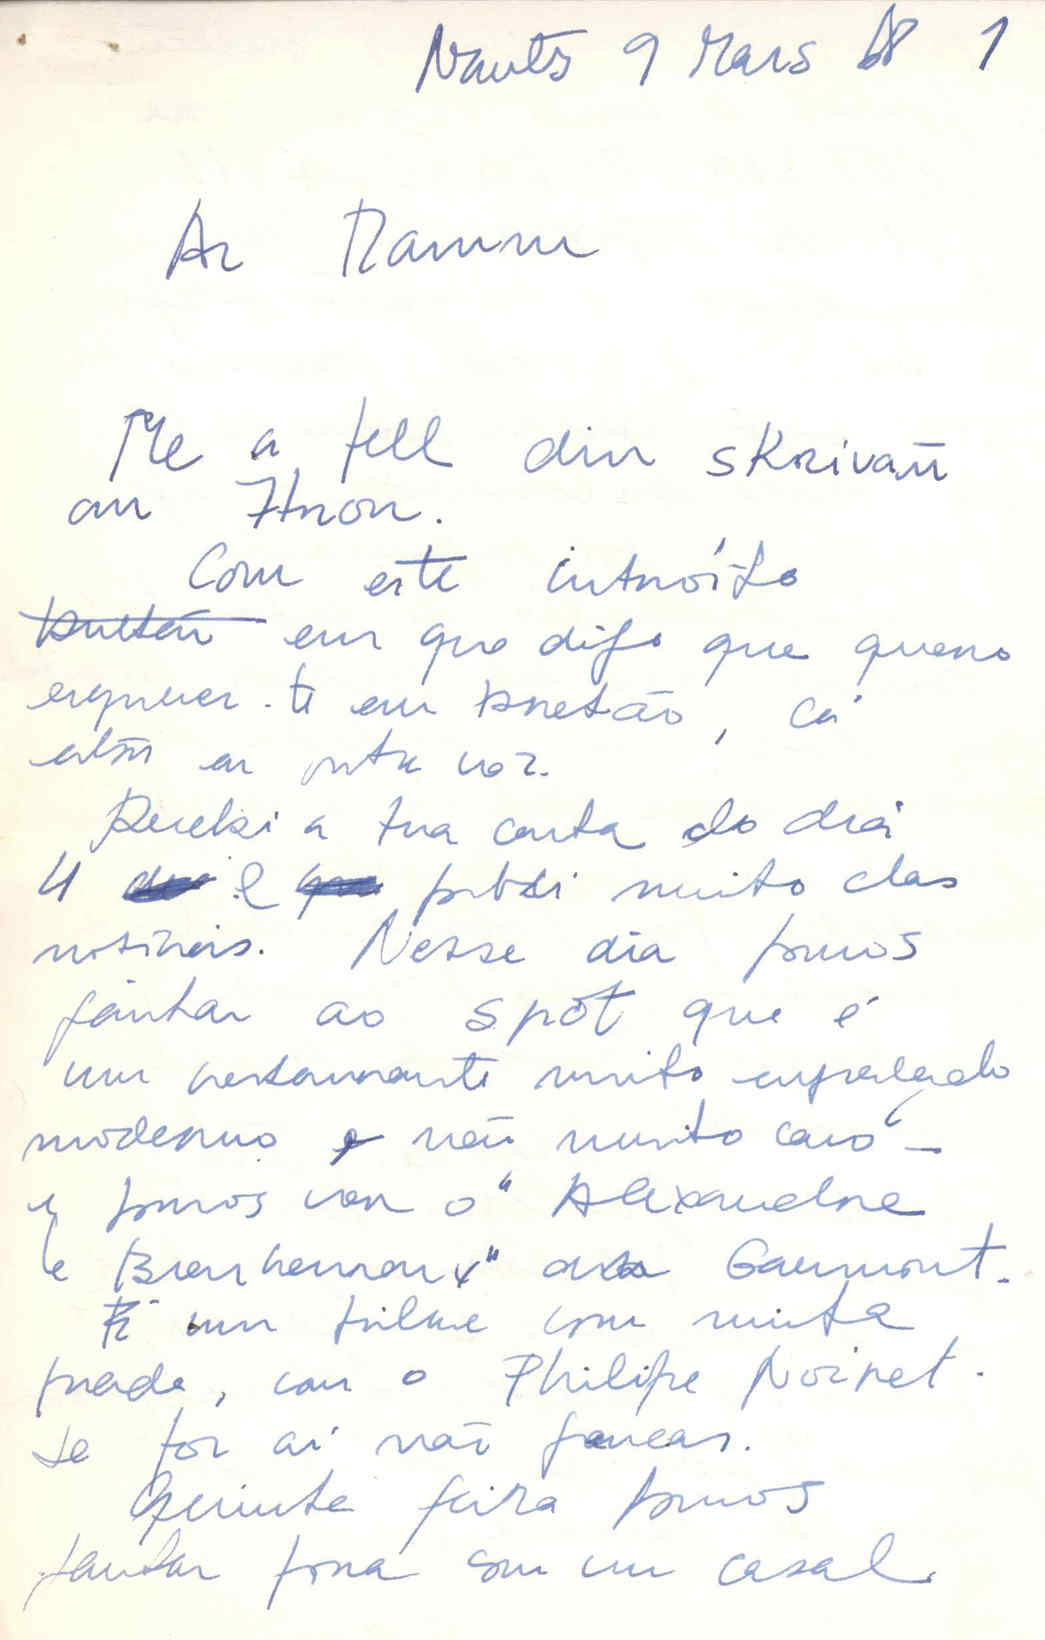 Nantes 9 Mars 68 1
Ar Mamm
Me a fell din skrivañ
an Itron.
Com este intróito
bretão em que digo que quero
escrever-te em bretão, cá
estou eu outra vez.
Recebi a tua carta do dia
4 e gostei muito das
notícias. Nesse dia fomos
jantar ao Spot que é
um restaurante muito engraçado
moderno e não muito caro –
e fomos ver o "Alexandre
le Bienheureux" ao Gaumont.
É um filme com muita
piada, com o Philipe Noiret.
Se for aí não percas.
Quinta feira fomos
jantar fora com um casal